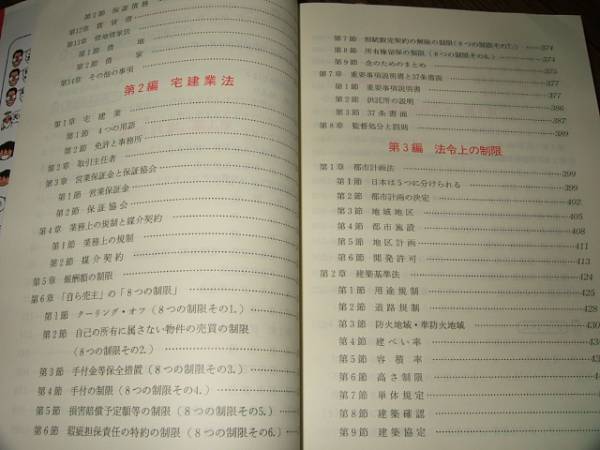 第2節 保証債務
第12章 賃貸借
第13章 借地借家法
第1節 借地
第2節 借家
第14章 その他の事項
第2編 宅建業法
第1章 宅建業
第1節 4つの用語
第2節 免許と事務所
第2章 取引主任者
第3章 営業保証金と保証協会
第1節 営業保証金
第2節 保証協会
第4章 業務上の規制と媒介契約
第1節 業務上の規制
第2節 媒介契約
第5章 報酬額の制限
第6章 「自ら売主」の「8つの制限」
第1節 クーリング・オフ(8つの制限その1.)
第2節 自己の所有に属さない物件の売買の制限
(8つの制限その2.)
第3節 手付金等保全措置(8つの制限その3.)
第4節 手付の制限(8つの制限その4.)
第5節 損害賠償予定額等の制限(8つの制限その5.)
第6節 瑕疵担保責任の特約の制限(8つの制限その6.)
第7節 割賦販売契約の解除の制限(8つの制限その7.) 374
第8節 所有権留保の制限(8つの制限その8.) 374
第9節 念のためのまとめ 375
第7章 重要事項説明書と37条書面 377
第1節 重要事項説明書 377
第2節 供託所の説明 386
第3節 37条書面 387
第8章 監督処分と罰則 389
第3編 法令上の制限
第1章 都市計画法 399
第1節 日本は5つに分けられる 399
第2節 都市計画の決定 402
第3節 地域地区 405
第4節 都市施設 408
第5節 地区計画 411
第6節 開発許可 413
第2章 建築基準法 424
第1節 用途規制 425
第2節 道路規制 428
第3節 防火地域・準防火地域 430
第4節 建ぺい率
第5節 容積率
第6節 高さ制限
第7節 単体規定
第8節 建築確認
第9節 建築協定